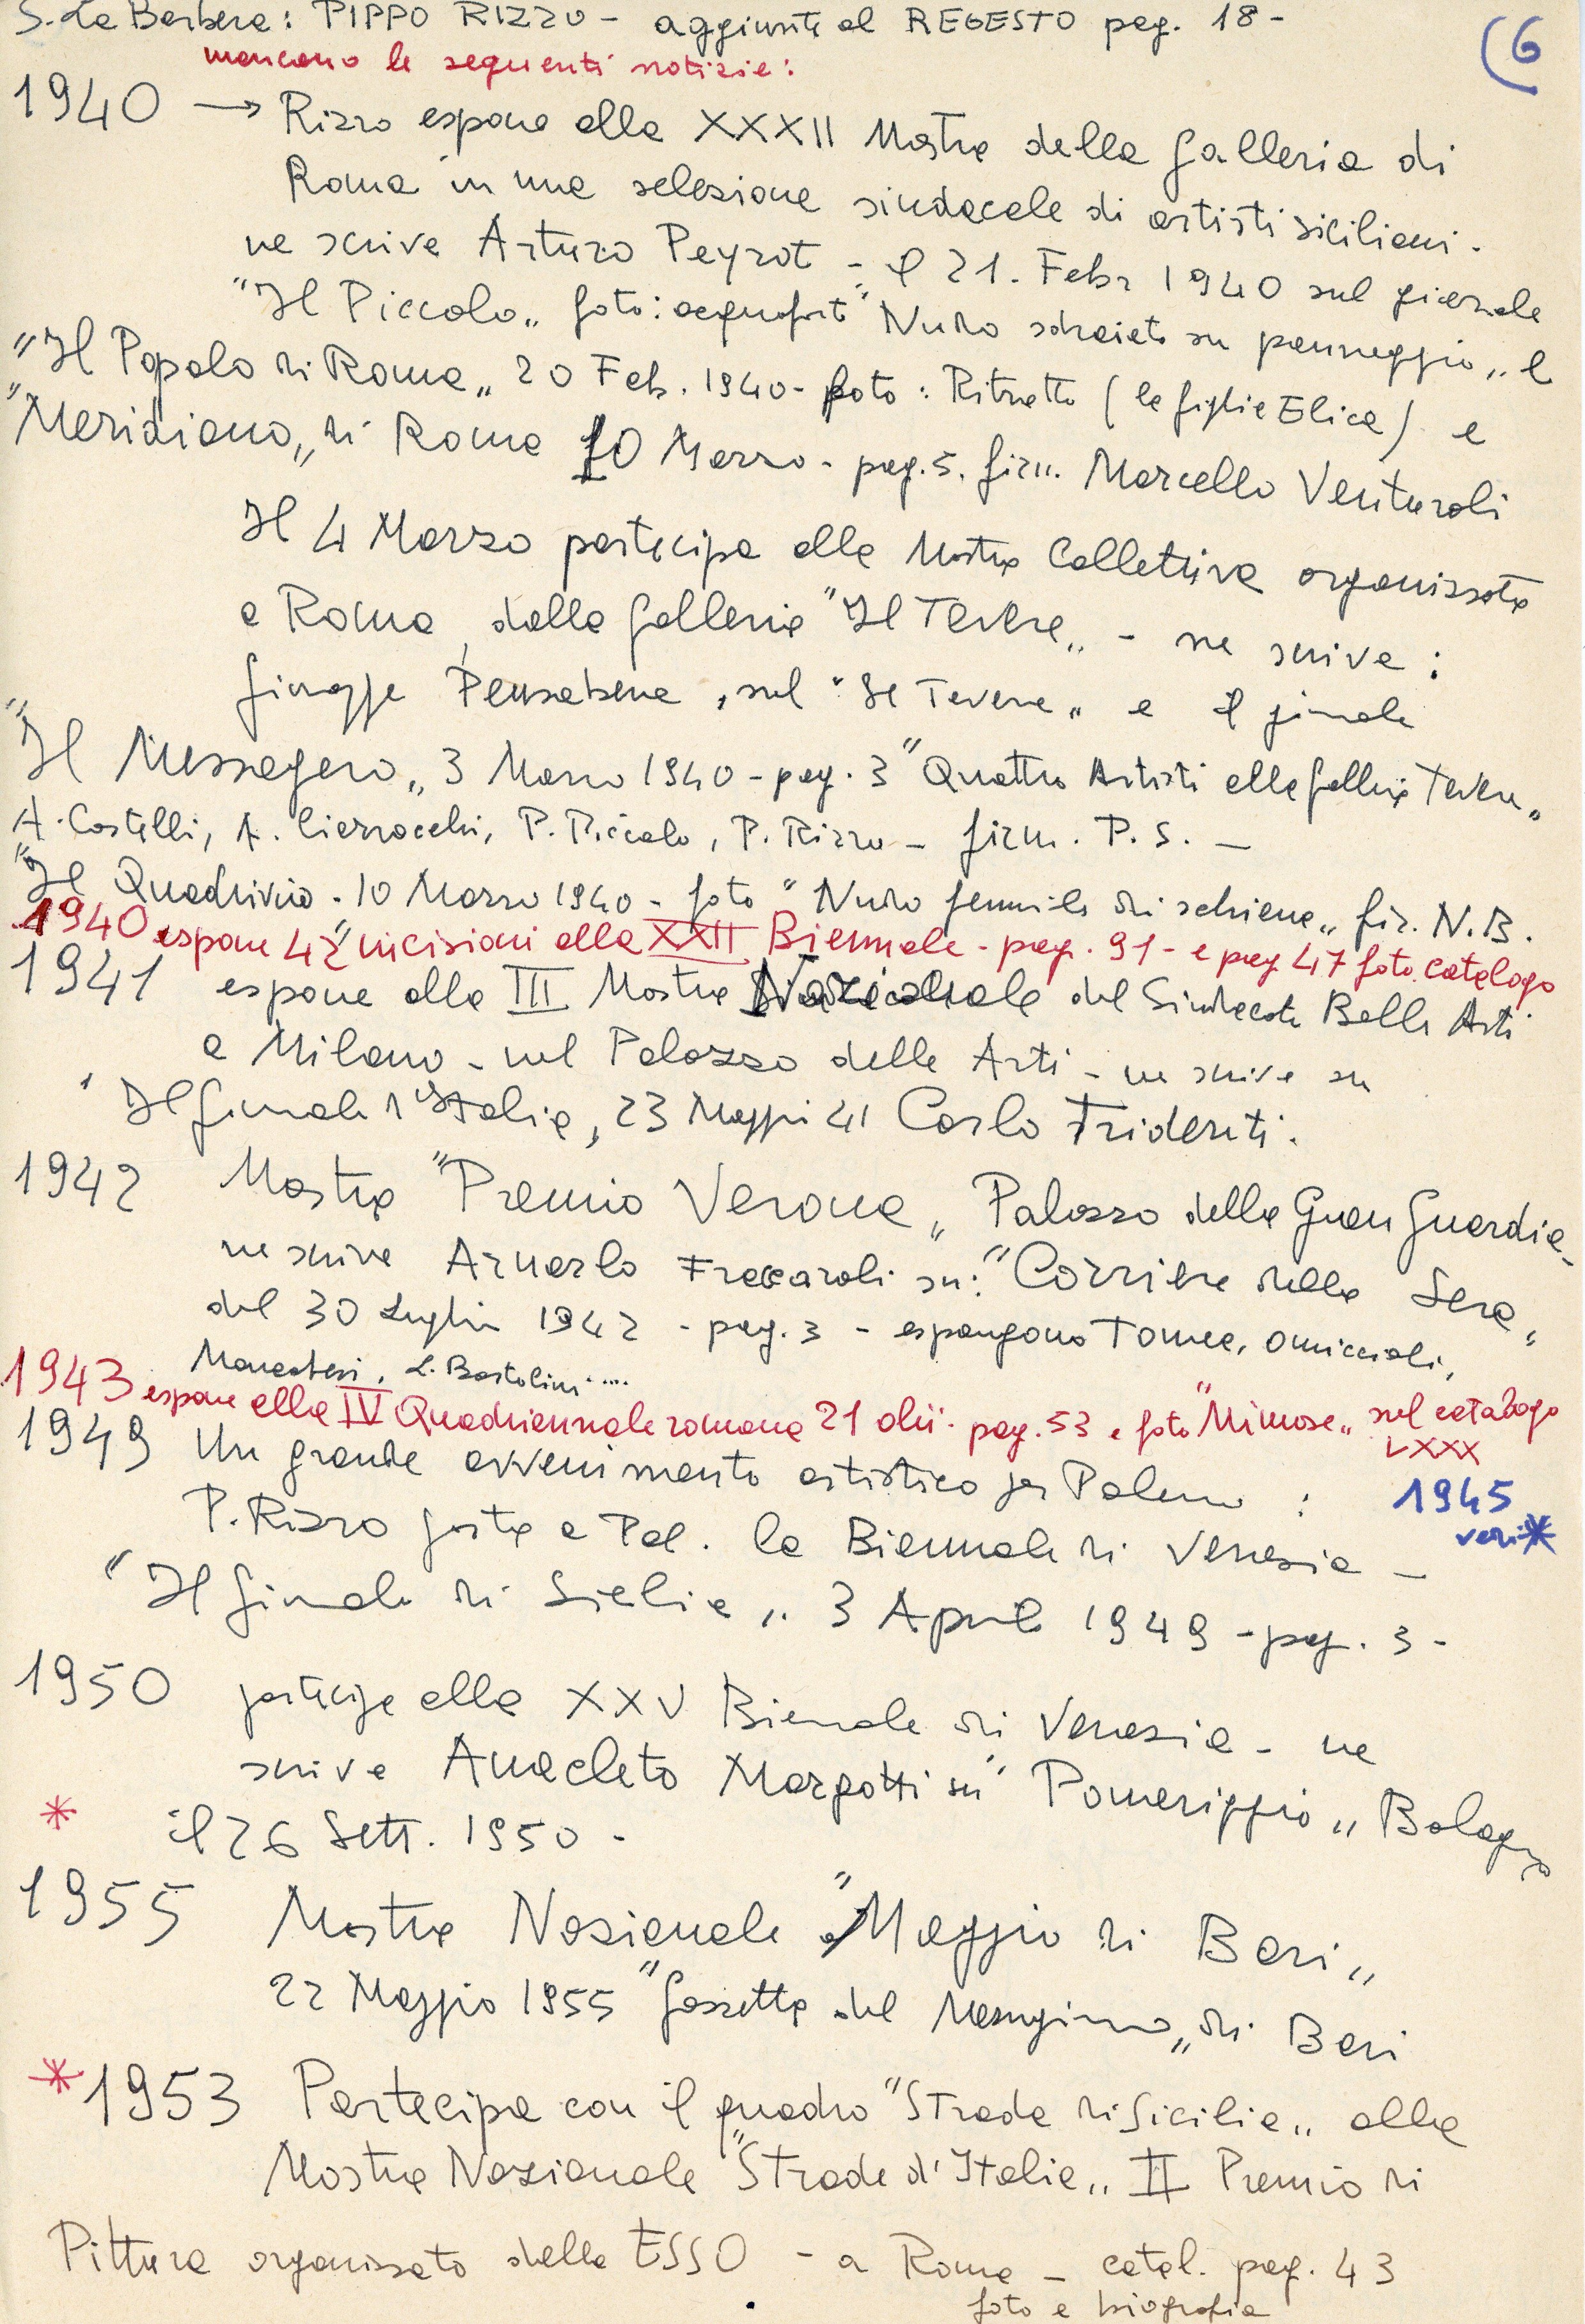 S. La Barbera: PIPPO RIZZO - aggiunte al REGESTO pag. 18 -
(6
mancano le seguenti notizie:
1940 → Rizzo espone alla XXXII Mostra della Galleria di
Roma in una selezione sindacale di artisti siciliani.
ne scrive Arturo Peyrot - il 21. Febr 1940 sul giornale
"Il Piccolo„ foto: acquaforte "Nudo sdraiato su panneggio„ e
"Il Popolo di Roma„ 20 Feb. 1940 - foto: Ritratto (la figlia Elica) e
"Meridiano„ di Roma 10 Marzo - pag. 5. firm. Marcello Venturoli
Il 4 Marzo partecipa alla Mostra Collettiva organizzata
a Roma, dalla Galleria "Il Tevere„ - ne scrive:
Giuseppe Pensabene, sul "Il Tevere„ e il giornale
"Il Messagero„ 3 Marzo 1940 - pag. 3 "Quattro Artisti alla Galleria Tevere„
A. Castelli, A. Ciarrocchi, P. Piccolo, P. Rizzo - firm. P. S. -
"Il Quadrivio - 10 Marzo 1940 - foto "Nudo femminile di schiena„ fir. N.B.
1940 espone 42 incisioni alla XXII Biennale - pag. 91 - e pag 47 foto catalogo
1941 espone alla III Mostra Nazionale del Sindacato Belle Arti
a Milano - nel Palazzo delle Arti - ne scrive su
"Il Giornale d'Italia, 23 Maggio 41 Carlo Tridenti.
1942 Mostra "Premio Verona„ Palazzo della Gran Guardia -
ne scrive Arnaldo Fraccaroli su: "Corriere della Sera„
del 30 Luglio 1942 - pag. 3 - espongono Tomea, Omiccioli,
Monachesi, L. Bartolini....
1943 espone alla IV Quadriennale romana 21 olii - pag. 53 e foto "Mimose„ sul catalogo
LXXX
1949 Un grande avvenimento artistico per Palermo:
1945
vedi *
P. Rizzo porta a Pal. la Biennale di Venezia -
"Il Giornale di Sicilia„ 3 Aprile 1949 - pag. 3 -
1950 partecipa alla XXV Biennale di Venezia - ne
scrive Anacleto Margotti su "Pomeriggio„ Bologna
* il 26 Sett. 1950 -
1955 Mostra Nazionale "Maggio di Bari„
22 Maggio 1955 "Gazzetta del Mezzogiorno„ di Bari
* 1953 Partecipa con il quadro "Strada di Sicilia„ alla
Mostra Nazionale "Strade d'Italia„ II Premio di
Pittura organizzato dalla ESSO - a Roma - catal. pag. 43
foto e biografia